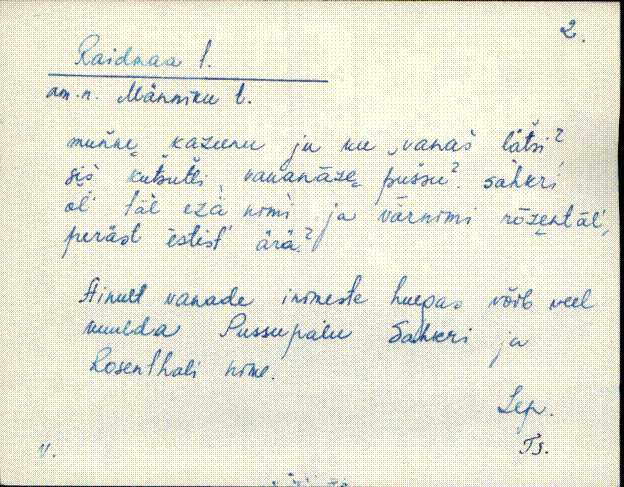 2.
Raidmaa t.
am. n. Männiku t.
kazunu ja ku vanàs lätsi?
siś kutsutti vananäze pušsu? sahkri
oĺ täl ezä nimi ja värnimi rõzentāĺ,
peräst ēstist ärä?
Ainult vanade inimeste huupas võib veel
kuulda Pussupalu Sahkri ja
Rosenthali nime.
Lep.
v. Ts.